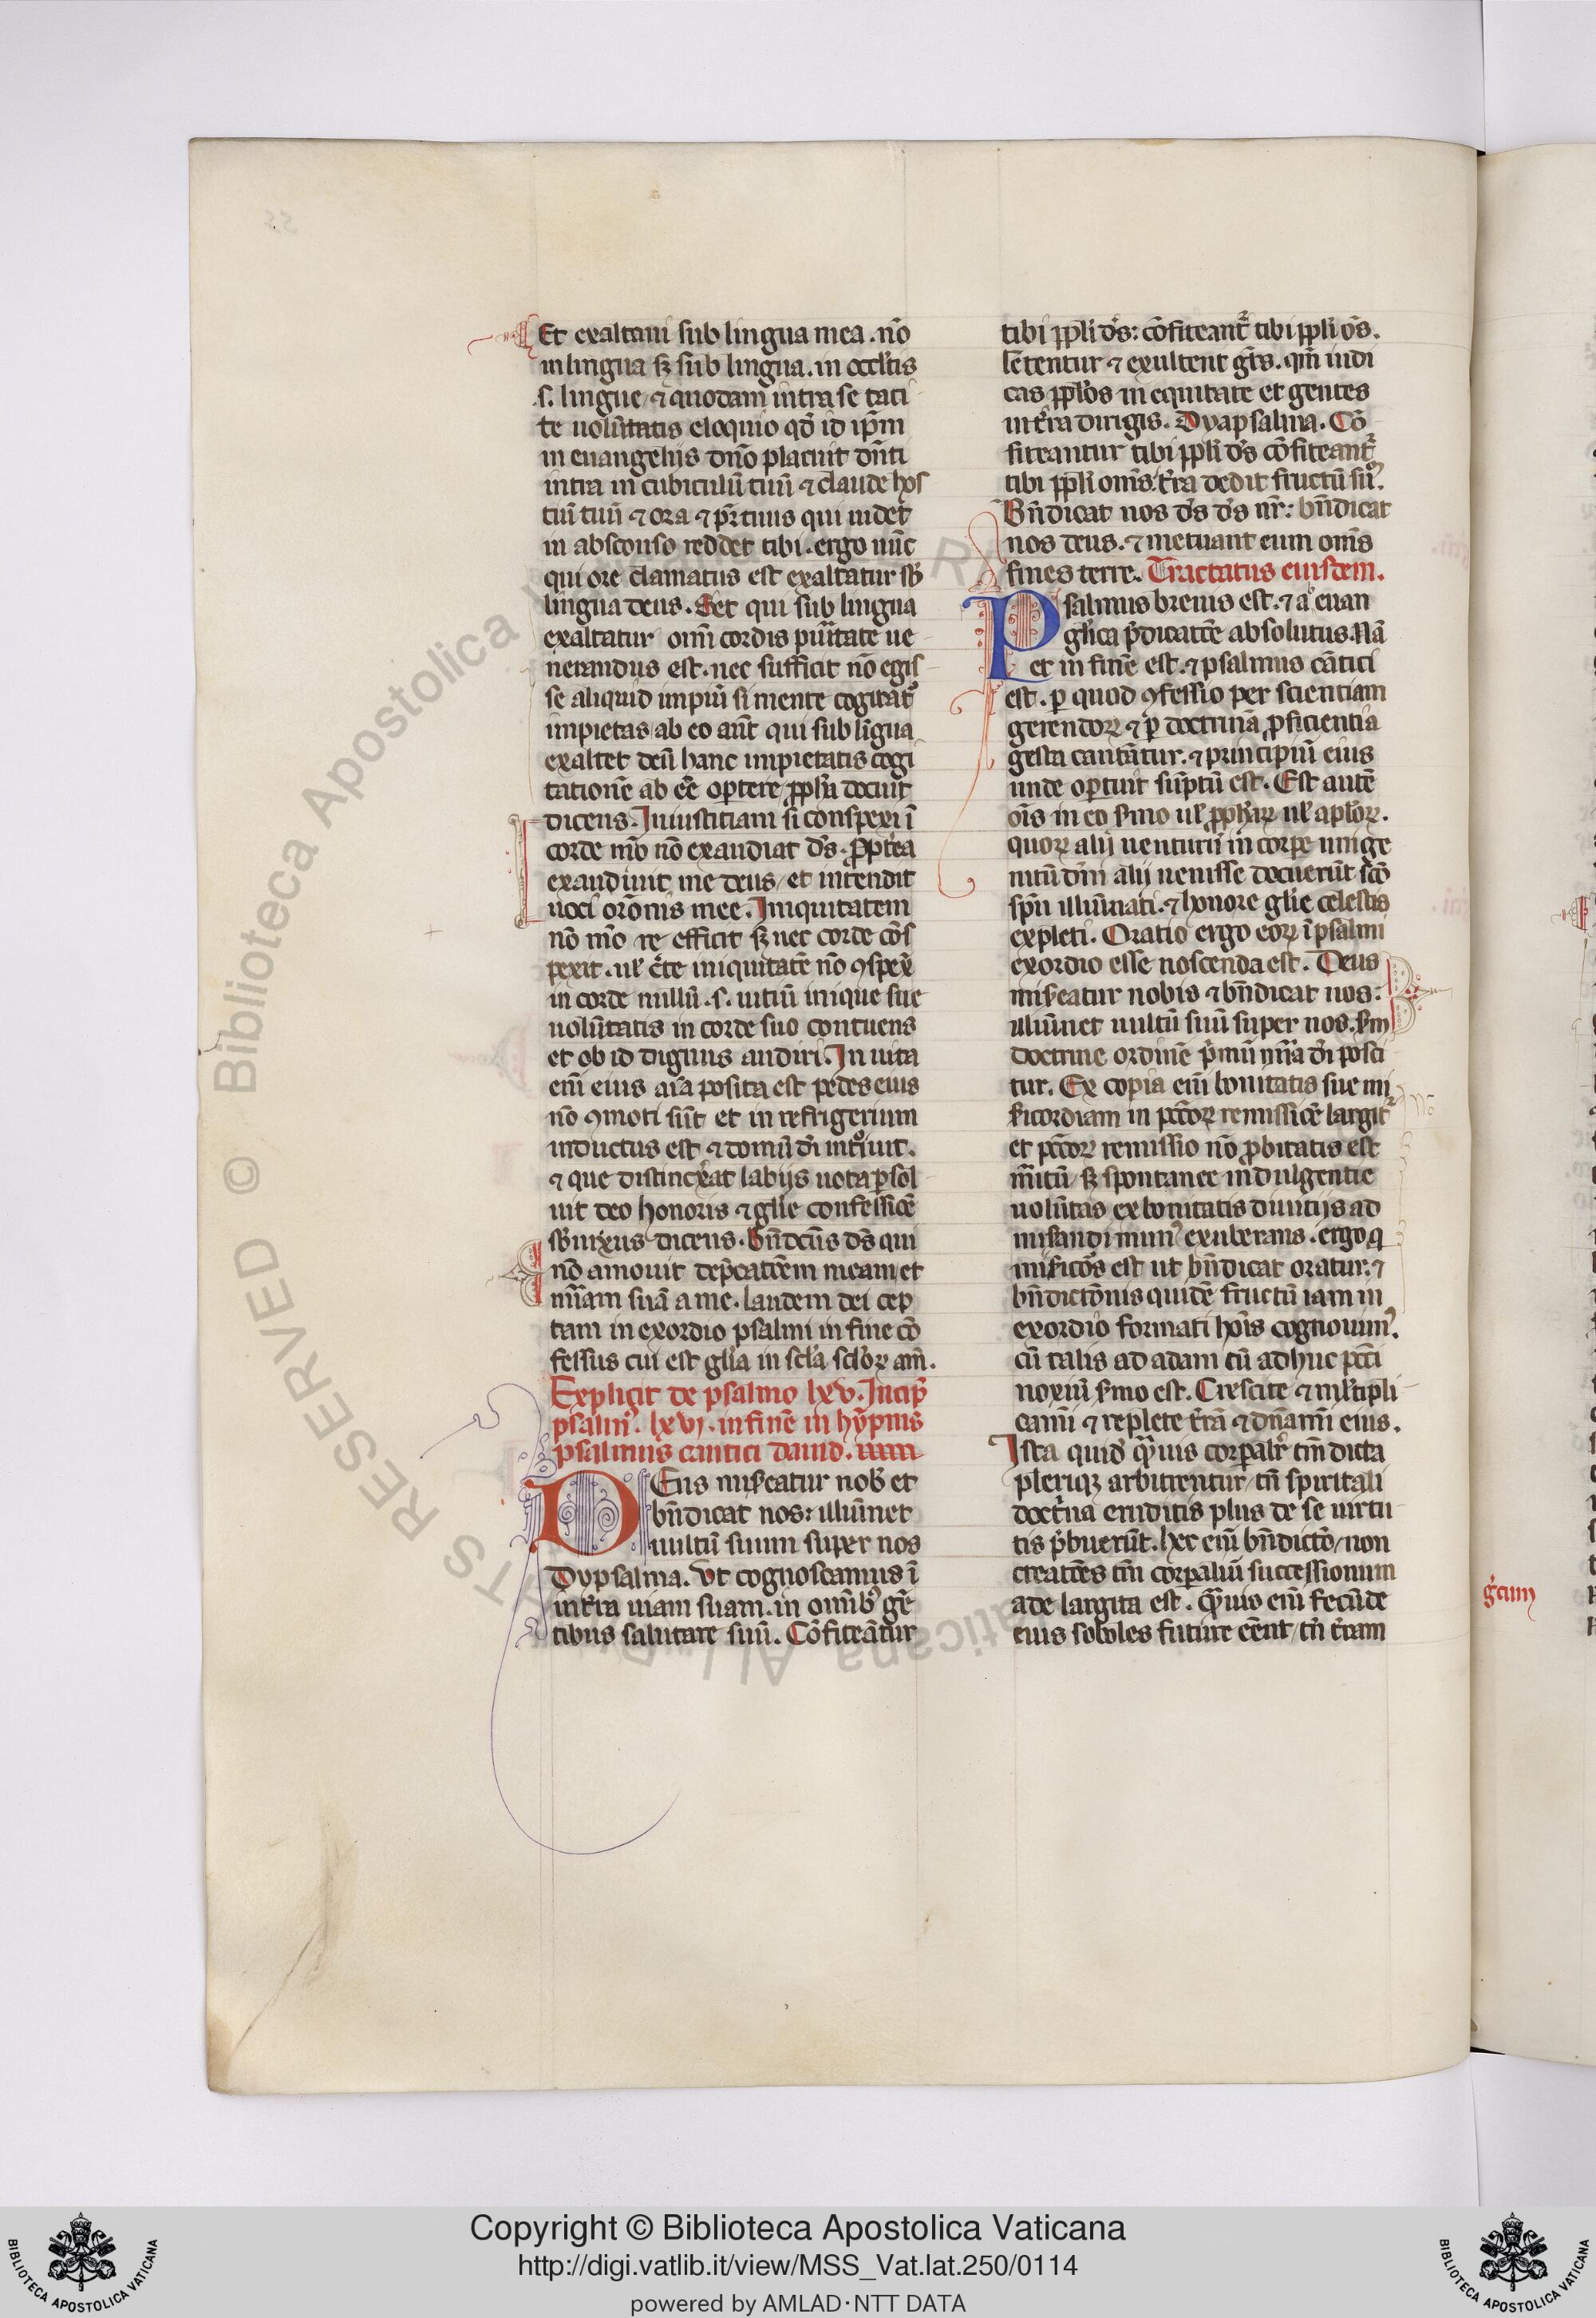 Et exaltaui sub lingua mea. nō
in lingua sꝫ sub lingua. in occl̓tis
.s. lingue ⁊ quodam intra se taci
te uolūtatis eloquio qd̓ id ip̄m
in euangelijs dn̄o placuit dn̄ti
intra in cubiculū tuū ⁊ claude hos
tiū tuū ⁊ ora ⁊ pr̄ tuus qui uidet
in absconso reddet tibi. ergo nūc
qui ore clamatus est exaltatur sb̓
lingua deus. Set qui sub lingua
exaltatur om̄i cordis puritate ue
nerandus est. nec sufficit nō egis
se aliquid impiū si mente cogitat᷑
impietas ab eo aūt qui sub līgua
exaltet deū hanc impietatis cogi
tationē ab eē oꝑtere ꝓph̓a docuit
dicens. Iniustitiam si conspexi ī
corde mō nō exaudiat ds̓. ꝓpt̓ea
exaudiuit me deus / et intendit
uoci orōnis mee. Iniquitatem
nō mō re efficit sꝫ nec corde cōs
pexit. ul̓ c̓te iniquitatē nō ꝯspex̓
in corde nullū .s. uitiū inique sue
uolūtatis in corde suo contuens
et ob id dignus audiri. In uita
eni̅ eius aīa posita est pedes eius
nō ꝯmoti sūt et in refrigerium
inductus est ⁊ domū di̅ int̓uit.
⁊ que distinx̓at labijs uota ꝑsol
uit deo honoris ⁊ gl̓ie confessiōē
sb̓nixus dicens. Bn̄dcūs ds̄ qui
nō amouit dep̄catiōem meam et
mi̅am suā a me. laudem dei cep
tam in exordio psalmi in fine cō
fessus cui est gl̓ia in scl̓a scl̓oꝝ am̄.
Explicit de psalmo lxv. Incip̄
psalm᷒. lxvj. in finē in hȳpnis
psalmus cantici dauid.
DEus mis̓eatur nob̓ et
bn̄dicat nos: illuīnet
uultū suum super nos
Dypsalma. Vt cognoscamus ī
in t̓ra uiam suam. in omīb᷒ gē
tibus salutare suū. Cōfiteātur
tibi ppl̓i ds̓: cōfiteant᷑ tibi ppl̓i oīs.
letentur ⁊ exultent gēs. qm̄ iudi
cas ppl̓os in equitate et gentes
in t̓ra dirigis. Dyapsalma. Cō
fiteantur tibi ppl̓i ds̓ cōfiteant᷑
tibi ppl̓i om̄s t̓ra dedit fructū suū.
Bn̄dicat nos ds̓ ds̓ nr̄: bn̄dicat
nos deus. ⁊ metuant eum om̄s
fines terre. Tractatus eiusdem.
Psalmus breuis est. ⁊ a euan
gl̓ica p̄dicatiōe absolutus. Nā
et in finē est. ⁊ psalmus cātici
est. ꝑ quod ꝯfessio per scientiam
gerendoꝝ ⁊ ꝑ doctrinā ꝓficientia
gesta cantātur. ⁊ principiū eius
unde oꝑtuit sūptū est. Est autē
oīs in eo s̓mo ul̓ ꝓph̓aꝝ ul̓ apl̓oꝝ.
quoꝝ alij uenturū in corꝑe unige
nitū di̅ alij uenisse docuerūt scō
sp̄u illuīnati. ⁊ honore gl̓ie celestis
expleti. Oratio ergo eoꝝ ī psalmi
exordio esse noscenda est. Deus
mis̓eatur nobis ⁊ bn̄dicat nos:
illuīnet uultū suū super nos. s̓m
doctrine ordinē p̓mū mi̅a di̅ posci
tur. Ex copia eni̅ bonitatis sue mi
s̓icordiam in pc̄coꝝ remissiōē largit᷑
et pc̄coꝝ remissio nō ꝓbitatis est
m̓itū / sꝫ spontanee indulgentie
uolūtas ex bonitatis diuitijs ad
mis̓andi mun᷒ exuberans. ergo q
mis̓icōs est ut bn̄dicat oratur. ⁊
bn̄dictōnis quidē fructū iam in
exordio formati hoīs cognouim᷒.
cū talis ad adam tū adhuc pc̄ci
noxiū s̓mo est. Crescite ⁊ ml̓tipli
camī ⁊ replete t̓rā ⁊ dn̄amī eius.
Ista quid̓ q̄uis corꝑalr̄ tm̄ dicta
pleriqꝫ arbitrentur / tn̄ spiritali
doct̓na eruditis plus de se uirtu
tis p̄buerūt. hec eni̅ bn̄dictō / non
creatiōes tm̄ corꝑaliū successionum
ade largita est. q̄uis eni̅ fecūde
eius soboles future eēnt / tn̄ t̓ram